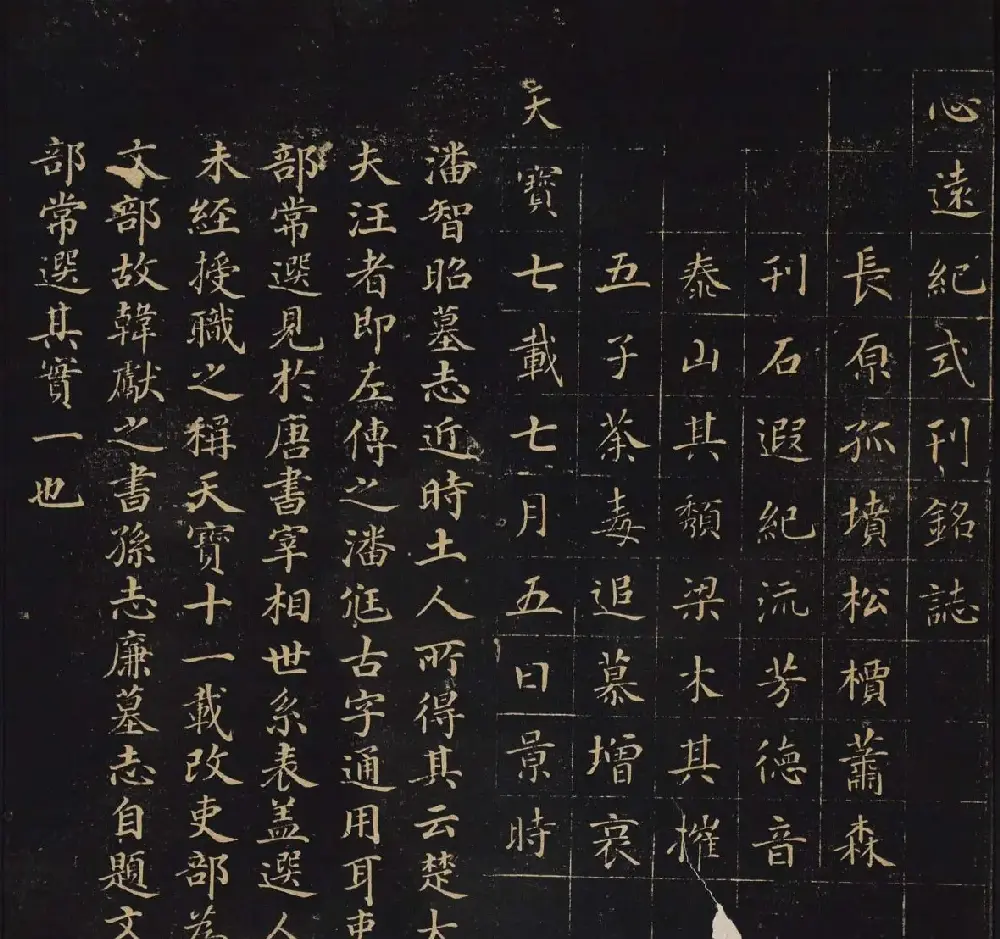 心遠紀式刊銘誌
長原孤墳松檟蕭森
刊石遐紀流芳德音
泰山其頹梁木其摧
五子荼毒追慕增哀
天寶七載七月五日景時
潘智昭墓志近時土人所得其云楚大
夫汪者即左傳之潘尫古字通用耳吏
部常選見於唐書宰相世系表盖選人
未經授職之稱天寶十一載改吏部為
文部故韓獻之書孫志廉墓志自題文
部常選其實一也